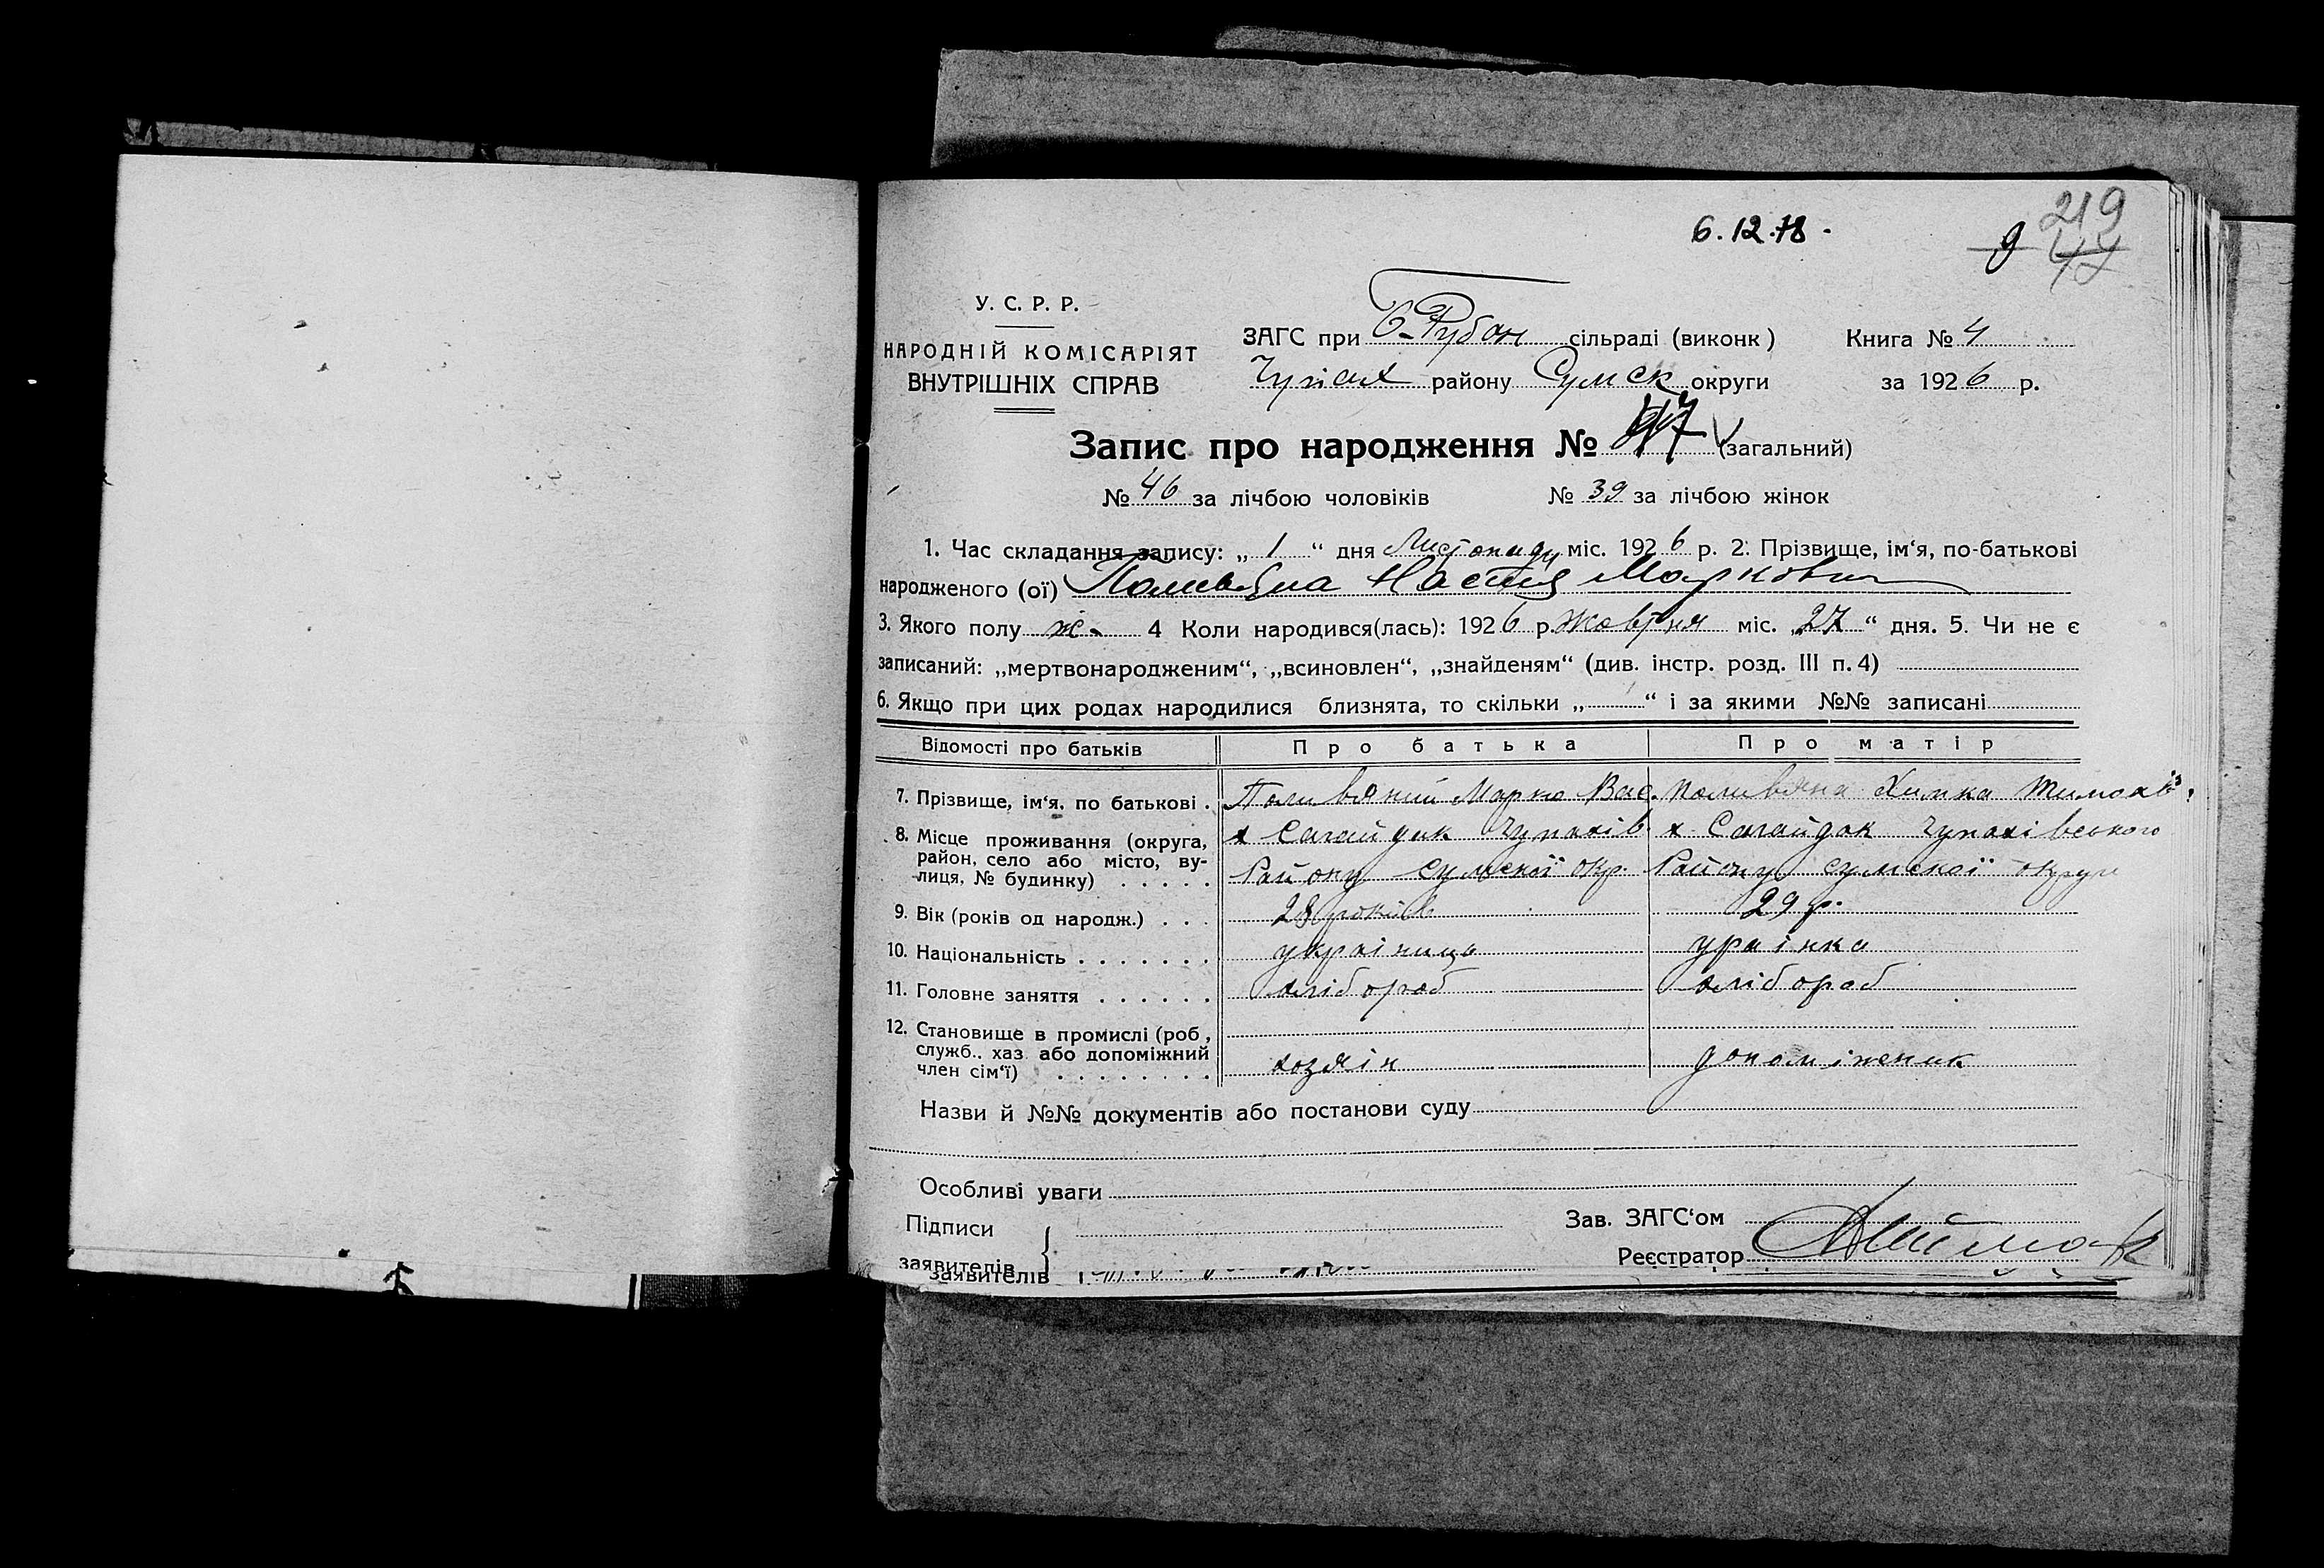 6.12.78.
9 219
У. С. Р. Р.
НАРОДНІЙ КОМІСАРІЯТ
ВНУТРІШНІХ СПРАВ
ЗАГС при Б-Рубан сільраді (виконк) Книга № 4
Чупах району Сумськ округи за 1926 р.
Запис про народження № (загальний)
№ 46 за лічбою чоловіків № 39 за лічбою жінок
1. Час складання запису: „ 1 “ дня Листопаду міс. 1926 р. 2. Прізвище, ім‘я, по-батькові
народженого (ої) Поливяна Настя Маркович
3. Якого полу ж. 4 Коли народився(лась): 1926 р. Жовтня міс. „27“ дня. 5. Чи не є
записаний: „мертвонародженим“, „всиновлен“, „знайденям“ (див. інстр. розд. III п. 4)
6. Якщо при цих родах народилися близнята, то скільки „ “ і за якими №№ записані
Відомості про батьків Про батька Про матір
7. Прізвище, ім‘я, по батькові . Поливяний Марко Вас. Поливяна Химка Тимохів
8. Місце проживання (округа, х Сагайдак Чупахів х. Сагайдак Чупахівського
район, село або місто, ву-
лиця, № будинку) . . . . . Району Сумської окр. Району Сумської округи
9. Вік (років од народж.) . . . 28 років 29 р.
10. Національність . . . . . . . україниць<br>ураінка
11. Головне заняття . . . . . . хлібороб хлібороб
12. Становище в промислі (роб ,
служб.. хаз або допоміжний
член сім‘ї) . . . . . . . . хозяін допоміженик
Назви й №№ документів або постанови суду
Особливі уваги
Підписи
заявителів
заявителів
Зав. ЗАГС‘ом
Реєстратор